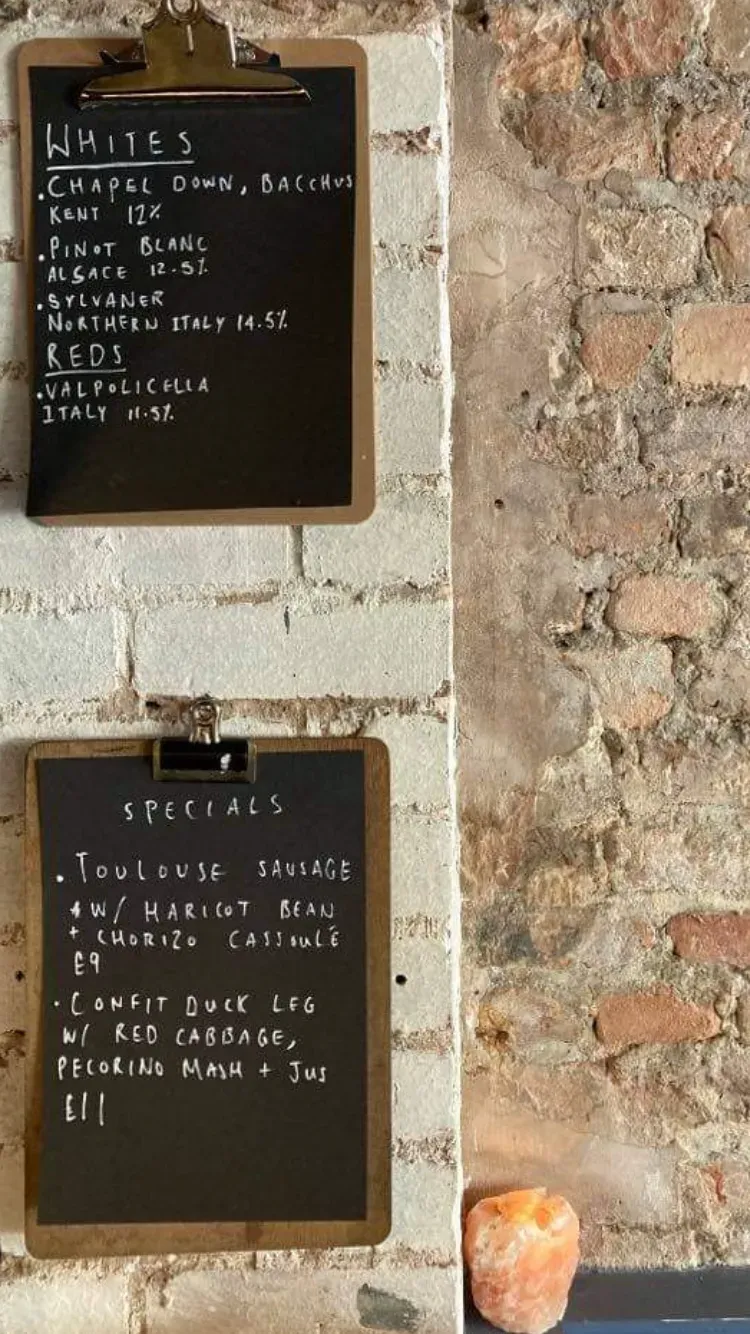 WHITES
•CHAPEL DOWN, BACCHUS
KENT 12%
•PINOT BLANC
ALSACE 12.5%
•SYLVANER
NORTHERN ITALY 14.5%
REDS
•VALPOLICELLA
ITALY 11.5%
SPECIALS
• TOULOUSE SAUSAGE
W/ HARICOT BEAN
+ CHORIZO CASSOULÉ
£9
• CONFIT DUCK LEG
W/ RED CABBAGE,
PECORINO MASH + JUS
£11